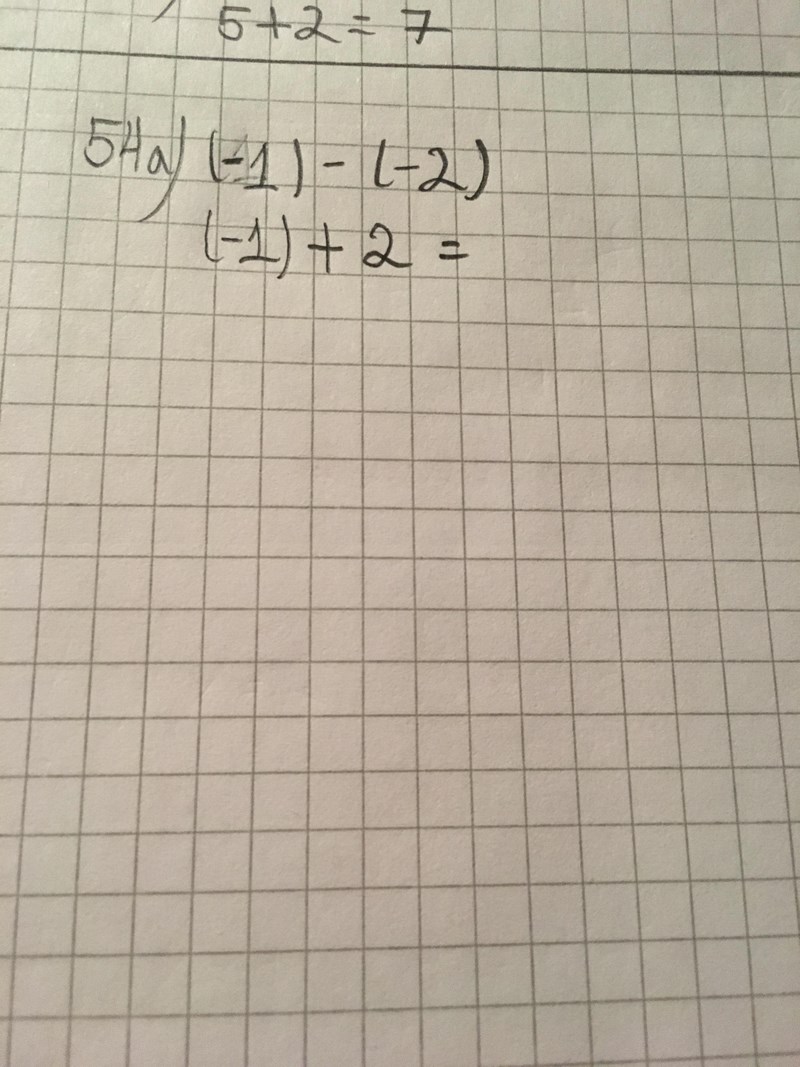 5+2=7
54a) (-1) - (-2)
(-1) + 2 =